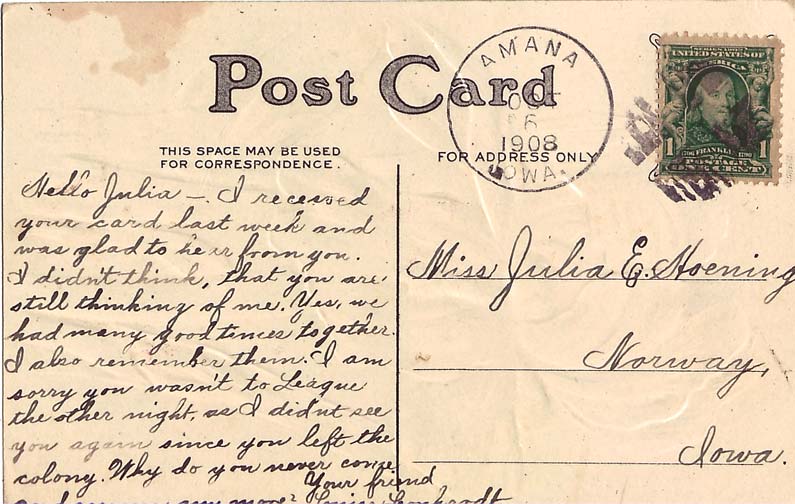 Post Card
THIS SPACE MAY BE USED
FOR CORRESPONDENCE.
FOR ADDRESS ONLY
AMANA
1908
IOWA.
SERIES 1902
UNITED STATES OF
AMERICA
1
1
FRANKLIN
POSTAGE
ONE CENT
Hello Julia —. I recessed
your card last week and
was glad to hear from you.
I didn't think, that you are
still thinking of me. Yes, we
had many good times together.
I also remember them. I am
sorry you wasn't to League
the other night, as I didnt see
you again since you left the
colony. Why do you never come
any more?
Your friend
Miss Julia E. Hoening
Norway,
Iowa.